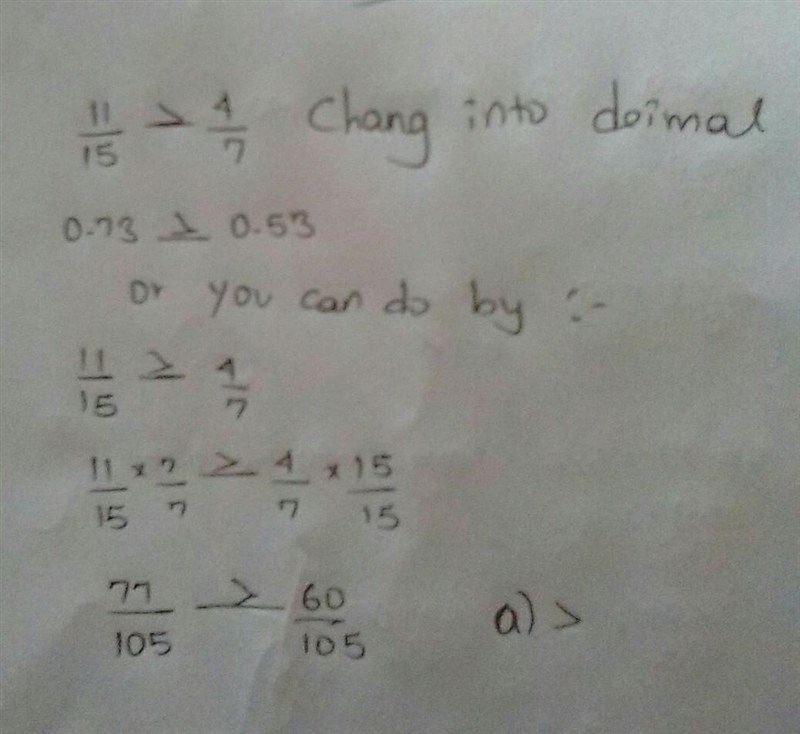 11/15 > 4/7 Chang into doimal
0.73 > 0.53
Or you can do by :-
11/15 > 4/7
11/15 × 7/7 > 4/7 × 15/15
77/105 > 60/105 a) >